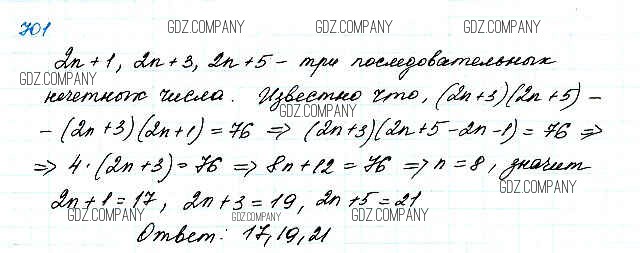 701
GDZ.COMPANY GDZ.COMPANY GDZ.COMPANY
2n+1, 2n+3, 2n+5 - три последовательных
GDZ.COMPANY
нечетных числа. Известно что, (2n+3)(2n+5) -
GDZ.COMPANY
- (2n+3)(2n+1) = 76 => (2n+3)(2n+5-2n-1) = 76 =>
=> 4·(2n+3) = 76 => 8n+12 = 76 => n=8, значит
GDZ.COMPANY
2n+1=17, 2n+3=19, 2n+5=21
GDZ.COMPANY GDZ.COMPANY GDZ.COMPANY
Ответ: 17, 19, 21